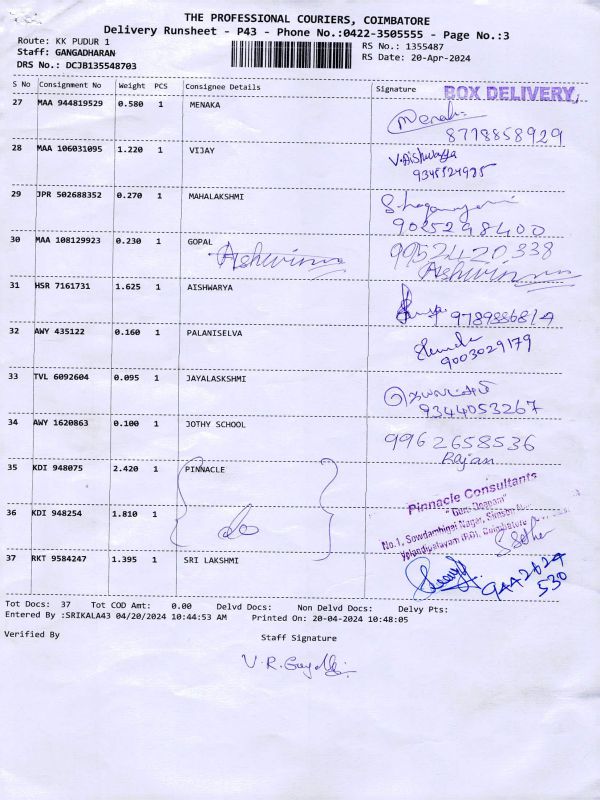 THE PROFESSIONAL COURIERS, COIMBATORE
Delivery Runsheet - P43 - Phone No.:0422-3505555 - Page No.:3
Route: KK PUDUR 1 RS No.: 1355487
Staff: GANGADHARAN RS Date: 20-Apr-2024
DRS No.: DCJB135548703
S No Consignment No Weight PCS Consignee Details Signature BOX DELIVERY,
27 MAA 944819529 0.580 1 MENAKA
Menaka
8778858929
28 MAA 106031095 1.220 1 VIJAY
V.Aishwarya
29 JPR 502688352 0.270 1 MAHALAKSHMI
9025298400
30 MAA 108129923 0.230 1 GOPAL 9952420338
31 HSR 7161731 1.625 1 AISHWARYA
32 AWY 435122 0.160 1 PALANISELVA
9003029179
33 TVL 6092604 0.095 1 JAYALASKSHMI
9344053267
34 AWY 1620863 0.100 1 JOTHY SCHOOL 9962658536
Rajan
35 KDI 948075 2.420 1 PINNACLE
Pinnacle Consultants
36 KDI 948254 1.810 1 do
No.1, Sowdambigai Nagar,
37 RKT 9584247 1.395 1 SRI LAKSHMI
Tot Docs: 37 Tot COD Amt: 0.00 Delvd Docs: Non Delvd Docs: Delvy Pts:
Entered By :SRIKALA43 04/20/2024 10:44:53 AM Printed On: 20-04-2024 10:48:05
Verified By Staff Signature